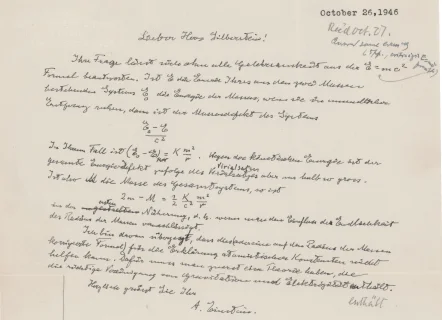 October 26, 1946
Rec'd Oct. 27.
Lieber Herr Silberstein!
Ihre Frage lässt sich ohne alle Gelehrsamkeit aus der E = mc²
Formel beantworten. Ist E die Energie Ihres aus den zwei Massen
bestehenden Systems E₀ die Energie der Massen, wenn sie in unendlicher
Entfernung ruhen, dann ist der Massendefekt des Systems
E₀ - E
c²
In Ihrem Fall ist (E₀ - E) = K m²/r. Wegen der kinetischen Energie ist der
gesamte Energiedefekt infolge des Virialsatzes nur halb so gross.
Ist also M die Masse des Gesamtsystems, so ist
2m - M = 1/2 K/c² m²/r
in der ersten Näherung, d. h. wenn man den Einfluss der Endlichkeit
des Radius der Massen vernachlässigt.
Ich bin davon überzeugt, dass
Formel) für die Erklärung atomistischer Konstanten nicht
helfen kann. Dafür muss man zuerst eine Theorie haben, die
die richtige Vereinigung von Gravitation und Elektrizität enthält.
enthält
Herzlich grüsst Sie Ihr
A. Einstein.